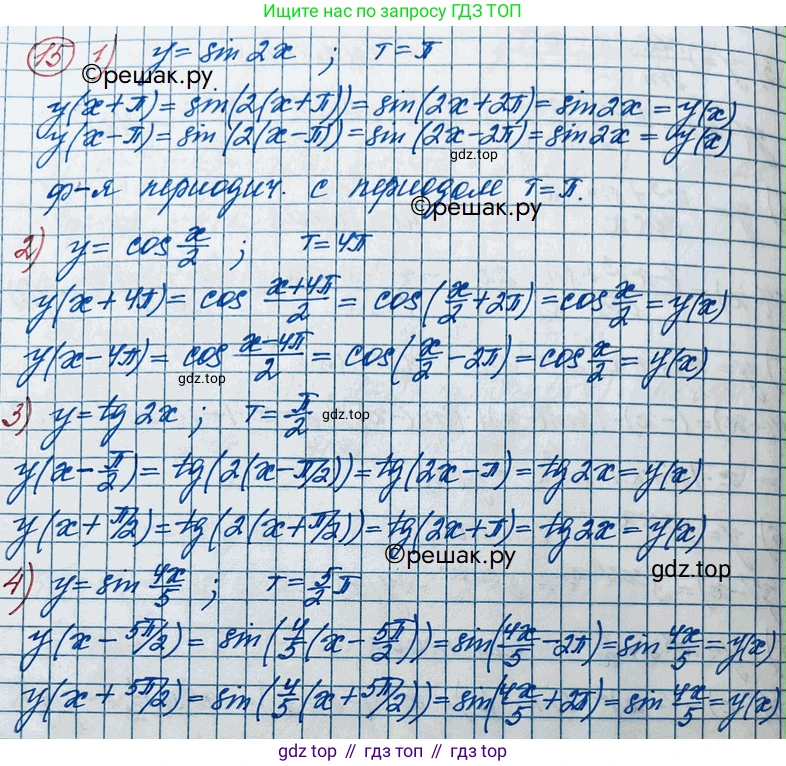 Ищите нас по запросу ГДЗ ТОП
15 1) y = sin 2x ; T = π
©решак.ру
y(x+π) = sin(2(x+π)) = sin(2x+2π) = sin2x = y(x)
y(x-π) = sin (2(x-π)) = sin (2x-2π) = sin2x = y(x)
gdz.top
ф-я периодич. с периодом T=π.
©решак.ру
2) y = cos x/2 ; T = 4π
y(x+4π) = cos (x+4π)/2 = cos(x/2 + 2π) = cos x/2 = y(x)
y(x-4π) = cos (x-4π)/2 = cos(x/2 - 2π) = cos x/2 = y(x)
gdz.top
3) y = tg 2x ; T = π/2
gdz.top
y(x - π/2) = tg(2(x-π/2)) = tg(2x-π) = tg2x = y(x)
y(x + π/2) = tg(2(x+π/2)) = tg(2x+π) = tg2x = y(x)
©решак.ру
gdz.top
4) y = sin 4x/5 ; T = 5/2 π
y(x - 5π/2) = sin(4/5(x - 5π/2)) = sin(4x/5 - 2π) = sin 4x/5 = y(x)
y(x + 5π/2) = sin(4/5(x + 5π/2)) = sin(4x/5 + 2π) = sin 4x/5 = y(x)
gdz.top // гдз топ // gdz.top